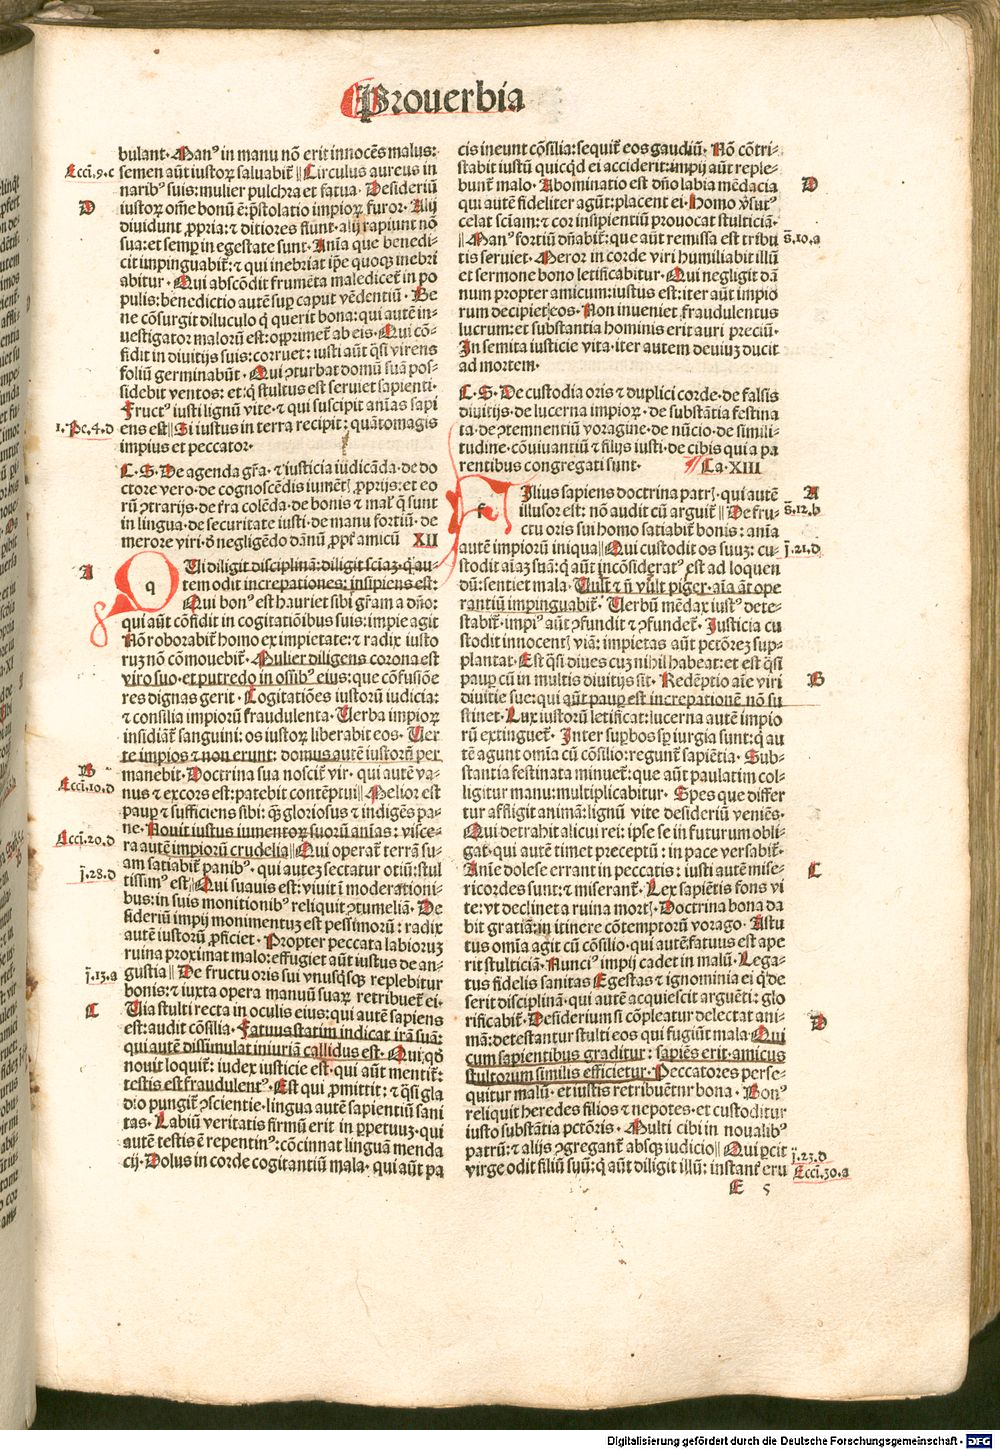 Prouerbia
bulant. Manꝰ in manu nō erit innocēs malus:
Ecci. 9. c
semen aūt iustoꝝ saluabit̄ || Circulus aureus in
naribꝰ suis: mulier pulchra et fatua. Desideriū
D
iustoꝝ om̄e bonū ē: p̄stolatio impioꝝ furor. Alij
diuidunt ꝓpria: ⁊ ditiores fiunt. alij rapiunt nō
sua: et semꝑ in egestate sunt. Anīa que benedi-
cit impinguabit̄: ⁊ qui inebriat ip̄e quoqꝫ inebri
abitur. Qui abscōdit frumēta maledicet̄ in po
pulis: benedictio autē suꝑ caput vēdentiū. Be
ne cōsurgit diluculo q̄ querit bona: qui autē in-
uestigator malorū est: opprimet̄ ab eis. Qui cō-
fidit in diuitijs suis: corruet: iusti aūt q̄si virens
foliū germinabūt. Qui ꝯturbat domū suā pos-
sidebit ventos: et q̄ stultus est seruiet sapienti.
Fructꝰ iusti lignū vite. ⁊ qui suscipit anīas sapi
1. Pe. 4. d
ens est || Si iustus in terra recipit: quātomagis
impius et peccator.
C. S. De agenda gr̄a. ⁊ iusticia iudicāda. de do
ctore vero. de cognoscēdis iumēt. ꝓprijs: et eo
rū ꝯtrarijs. de fr̄a colēda. de bonis ⁊ mal q̄ sunt
in lingua. de securitate iusti. de manu fortiū. de
merore viri. d̄ negligēdo dānū ꝓpt̄ amicū XII
A
q
QUi diligit disciplinā: diligit sciaꝫ. q̄ au-
tem odit increpationes: insipiens est:
Qui bonꝰ est hauriet sibi gr̄am a dn̄o:
qui aūt cōfidit in cogitatiōibus suis: impie agit
Nō roborabit̄ homo ex impietate: ⁊ radix iusto
ruꝫ nō cōmouebit̄. Mulier diligens corona est
viro suo. et putredo in ossibꝰ eius: que cōfusiōe
res dignas gerit. Cogitatiōes iustorū iudicia:
⁊ consilia impiorū fraudulenta. Verba impioꝝ
insidiāt̄ sanguini: os iustoꝝ liberabit eos. Ver
te impios ⁊ non erunt: domus autē iustorū per
B
manebit. Doctrina sua noscit̄ vir. qui autē va-
Ecci. 10. d
nus ⁊ excors est: patebit contēptui || Melior est
pauꝑ ⁊ sufficiens sibi: q̄ gloriosus ⁊ indigēs pa-
ne. Nouit iustus iumentoꝝ suorū anīas: visce-
Ecci. 20. d
ra autē impiorū crudelia || Qui operat̄ terrā su-
am satiabit̄ panibꝰ. qui auteꝫ sectatur otiū: stul
j. 28. d
tissimꝰ est || Qui suauis est: viuit ī moderationi-
bus: in suis monitionibꝰ reliquit ꝯtumeliā. De
sideriū impij monimentuꝫ est pessimorū: radix
autē iustorū ꝓficiet. Propter peccata labioruꝫ
ruina proximat malo: effugiet aūt iustus de an-
j. 13. a
gustia || De fructu oris sui vnusq̄sqꝫ replebitur
bonis: ⁊ iuxta opera manuū suaꝝ retribuet̄ ei.
C
Via stulti recta in oculis eius: qui autē sapiens
est: audit cōsilia. Fatuus statim indicat irā suā:
qui autē dissimulat iniuriā callidus est. Qui qd̄
nouit loquit̄: iudex iusticie est. qui aūt mentit̄:
testis est fraudulenꝰ. Est qui ꝓmittit: ⁊ q̄si gla
dio pungit̄ ꝯscientie. lingua autē sapientiū sani
tas. Labiū veritatis firmū erit in ꝑpetuuꝫ. qui
autē testis ē repentinꝰ: cōcinnat linguā menda
cij. Dolus in corde cogitantiū mala. qui aūt pa
cis ineunt cōsilia: sequit̄ eos gaudiū. Nō cōtri-
stabit iustū quicqd ei acciderit: impij aūt reple-
bunt̄ malo. Abominatio est dn̄o labia mēdacia
D
qui autē fideliter agūt: placent ei. Homo v̓sutꝰ
celat sciam: ⁊ cor insipientiū prouocat stulticiā.
|| Manꝰ fortiū dn̄abit̄: que aūt remissa est tribu
s̄. 10. a
tis seruiet. Meror in corde viri humiliabit illū
et sermone bono letificabitur. Qui negligit dā
num propter amicum: iustus est: iter aūt impio
rum decipiet eos. Non inueniet fraudulentus
lucrum: et substantia hominis erit auri preciū.
In semita iusticie vita. iter autem deuiuꝫ ducit
ad mortem.
C. S. De custodia oris ⁊ duplici corde. de falsis
diuitijs. de lucerna impioꝝ. de substātia festina
ta. de ꝯtemnentiū voragine. de nūcio. de simili-
tudine. cōuiuantiū ⁊ filijs iusti. de cibis qui a pa
rentibus congregati sunt. Ca. XIII
f
FIlius sapiens doctrina patr̄. qui autē
A
illusor est: nō audit cū arguit̄ || De fru-
s̄. 12. b
ctu oris sui homo satiabit̄ bonis: anīa
autē impiorū iniqua || Qui custodit os suuꝫ: cu-
j. 21. d
stodit aīaꝫ suā: q̄ aūt incōsideratꝰ est ad loquen
dū: sentiet mala. Vult ⁊ n̄ vult piger. aīa aūt ope
rantiū impinguabit̄. Verbū mēdax iustꝰ dete-
stabit̄. impiꝰ aūt ꝯfundit ⁊ ꝯfundet̄. Justicia cu
stodit innocent viā: impietas aūt pctōreꝫ sup-
plantat. Est q̄si diues cuꝫ nihil habeat: et est q̄si
pauꝑ cū in multis diuitijs sit. Redēptio aīe viri
B
diuitie sue: qui aūt pauꝑ est increpationē nō su
stinet. Lux iustorū letificat: lucerna autē impio
rū extinguet̄. Inter suꝑbos sꝑ iurgia sunt: q̄ au
tē agunt omīa cū cōsilio: regunt̄ sapiētia. Sub-
stantia festinata minuet̄: que aūt paulatim col-
ligitur manu: multiplicabitur. Spes que differ
tur affligit animā: lignū vite desideriū veniēs.
Qui detrahit alicui rei: ipse se in futurum obli-
gat. qui autē timet preceptū: in pace versabit̄.
Anīe dolose errant in peccatis: iusti autē mise-
C
ricordes sunt: ⁊ miserant̄. Lex sapiētis fons vi
te: vt declinet a ruina mort. Doctrina bona da
bit gratiā: in itinere cōtemptorū vorago. Astu
tus omīa agit cū cōsilio. qui autē fatuus est ape
rit stulticiā. Nunciꝰ impij cadet in malū. Lega-
tus fidelis sanitas Egestas ⁊ ignominia ei q̄ de
serit disciplinā. qui autē acquiescit arguēti: glo
rificabit̄. Desiderium si cōpleatur delectat ani-
D
mā: detestantur stulti eos qui fugiūt mala. Qui
cum sapientibus graditur: sapiēs erit. amicus
stultorum similis efficietur. Peccatores perse-
quitur malū. et iustis retribuētur bona. Bonꝰ
reliquit heredes filios ⁊ nepotes. et custoditur
iusto substātia pctōris. Multi cibi in noualibꝰ
patrū: ⁊ alijs ꝯgregant̄ absqꝫ iudicio || Qui ꝑcit
j. 23. d
virge odit filiū suū: q̄ aūt diligit illū: instant̄ eru
Ecci. 30. a
E 5
Digitalisierung gefördert durch die Deutsche Forschungsgemeinschaft - DFG